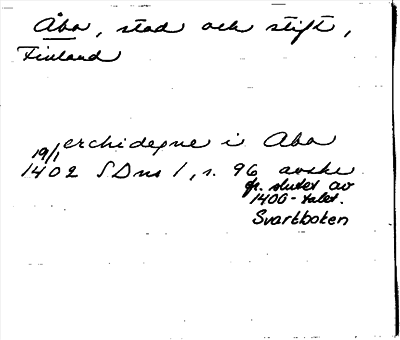 Åbo, stad och stift,
Finland
erchidepne i Abo
19/1
1402 SDns 1, s. 96 avskr
fr. slutet av
1400-talet.
Svartboken